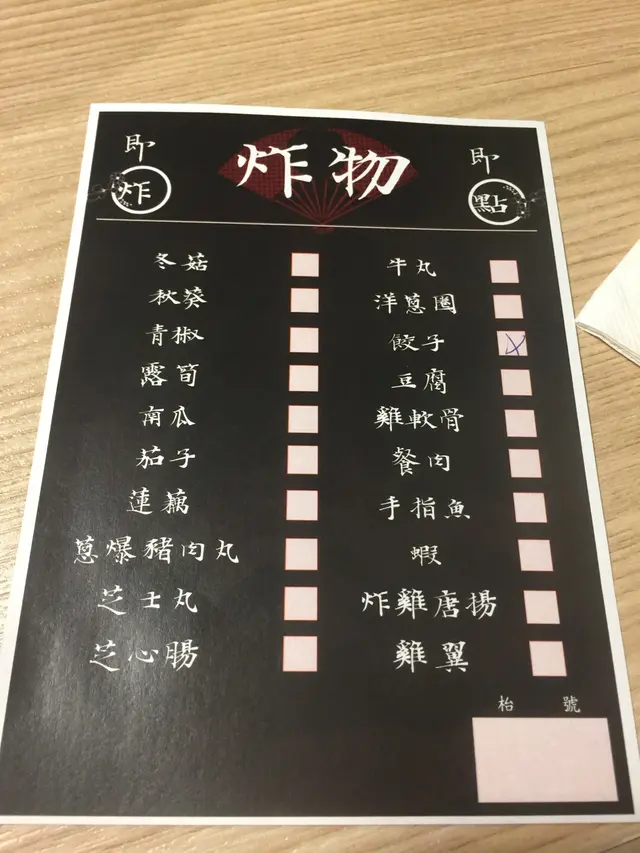 即炸
炸物
即點
冬菇
秋葵
青椒
露筍
南瓜
茄子
蓮藕
蔥爆豬肉丸
芝士丸
芝心腸
牛丸
洋蔥圈
餃子
豆腐
雞軟骨
餐肉
手指魚
蝦
炸雞唐揚
雞翼
枱號